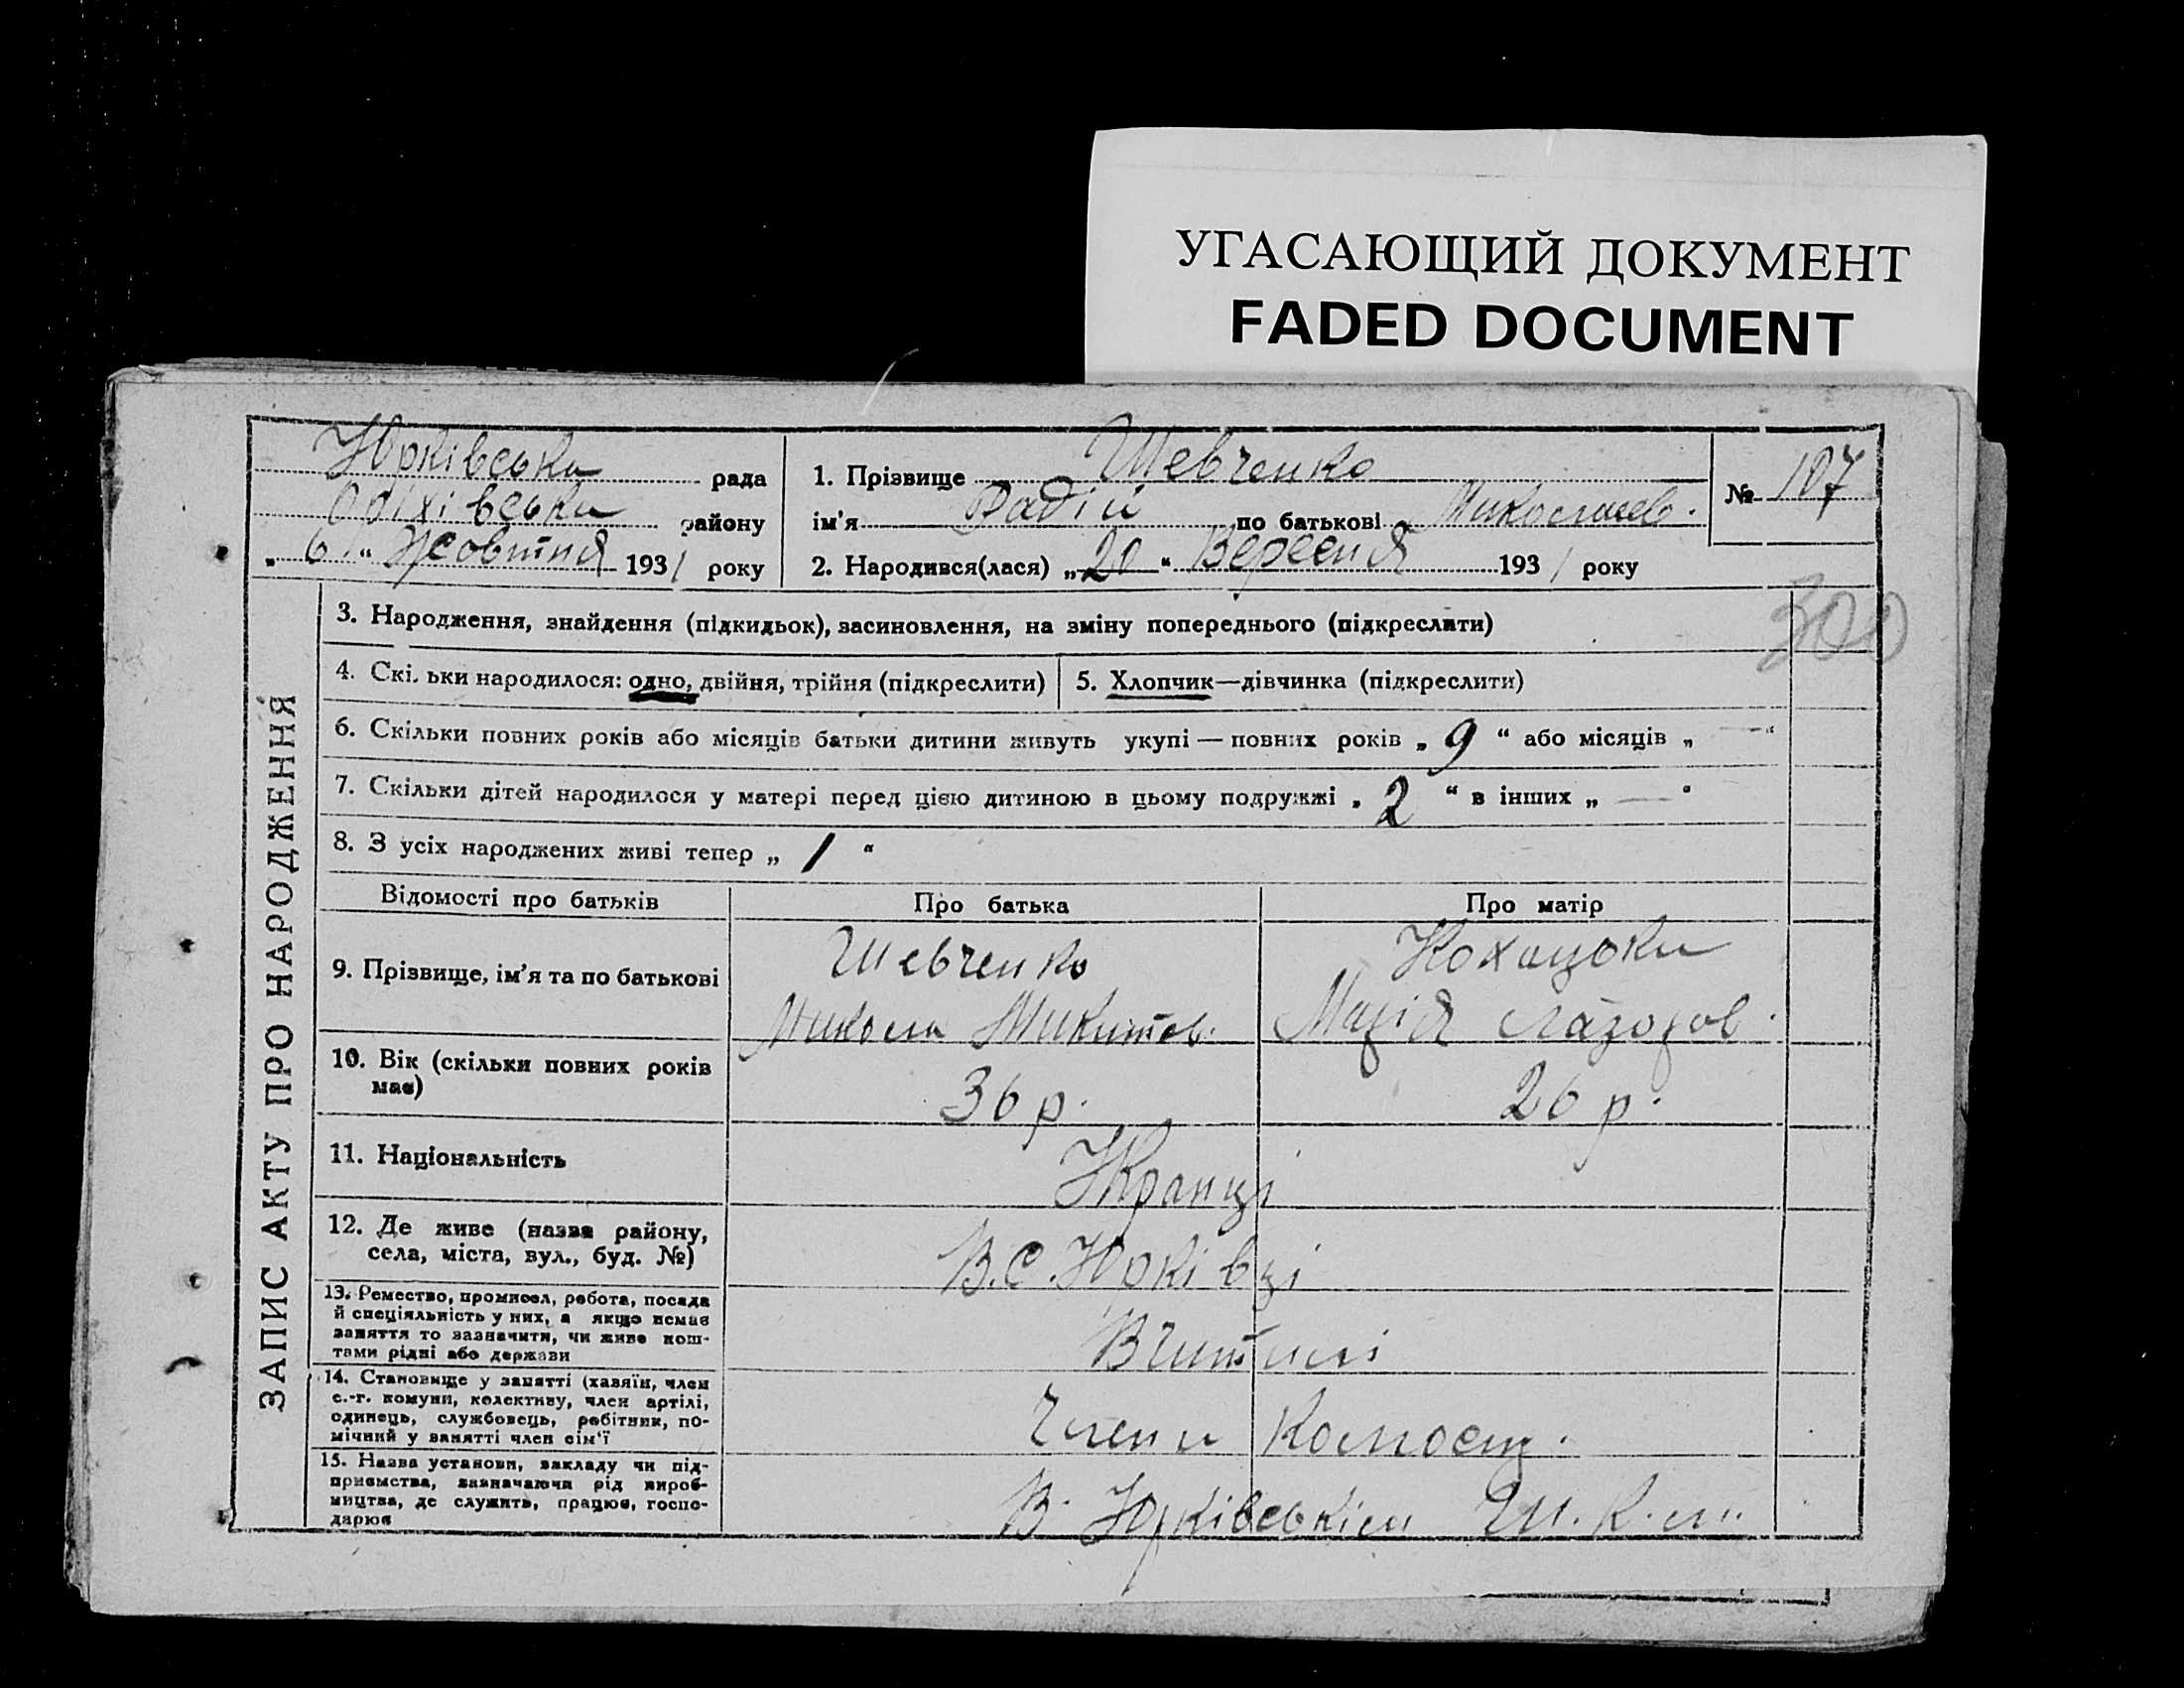 УГАСАЮЩИЙ ДОКУМЕНТ
FADED DOCUMENT
Юрківська рада
Оріхівська району
„ 6 “ Жовтня 1931 року
1. Прізвище Шевченко
ім'я Радій по батькові Миколаєв.
2. Народився(лася) „ 20 “ Вересня 1931 року
№ 107
300
ЗАПИС АКТУ ПРО НАРОДЖЕННЯ
3. Народження, знайдення (підкидьок), засиновлення, на зміну попереднього (підкреслити)
4. Скі. ьки народилося: одно, двійня, трійня (підкреслити)
5. Хлопчик—дівчинка (підкреслити)
6. Скільки повних років або місяців батьки дитини живуть укупі — повних років „ 9 “ або місяців „ — “
7. Скільки дітей народилося у матері перед цією дитиною в цьому подружжі „ 2 “ в інших „ — “
8. З усіх народжених живі тепер „ 1 “
Відомості про батьків Про батька Про матір
9. Прізвище, ім'я та по батькові
Шевченко
Микола Микитов.
Кохацька
Марія Лазоров.
10. Вік (скільки повних років
має)
36 р. 26 р.
11. Національність
Украпці
12. Де живе (назва району,
села, міста, вул., буд. №)
В. с. Юрківці
13. Ремество, промисел, робота, посада
й спеціяльність у них, а якщо немає
заняття то зазначити, чи живе кош-
тами рідні або держави
Вчителі
14. Становище у занятті (хазяїн, член
с.-г. комуни, колективу, член артілі,
одинець, службовець, робітник, по-
мічний у занятті член сім'ї
Члени
15. Назва установи, закладу чи під-
приємства, зазначаючи рід вироб-
ництва, де служить, працює, госпо-
дарює
В. Юрківській Ш. К. М.